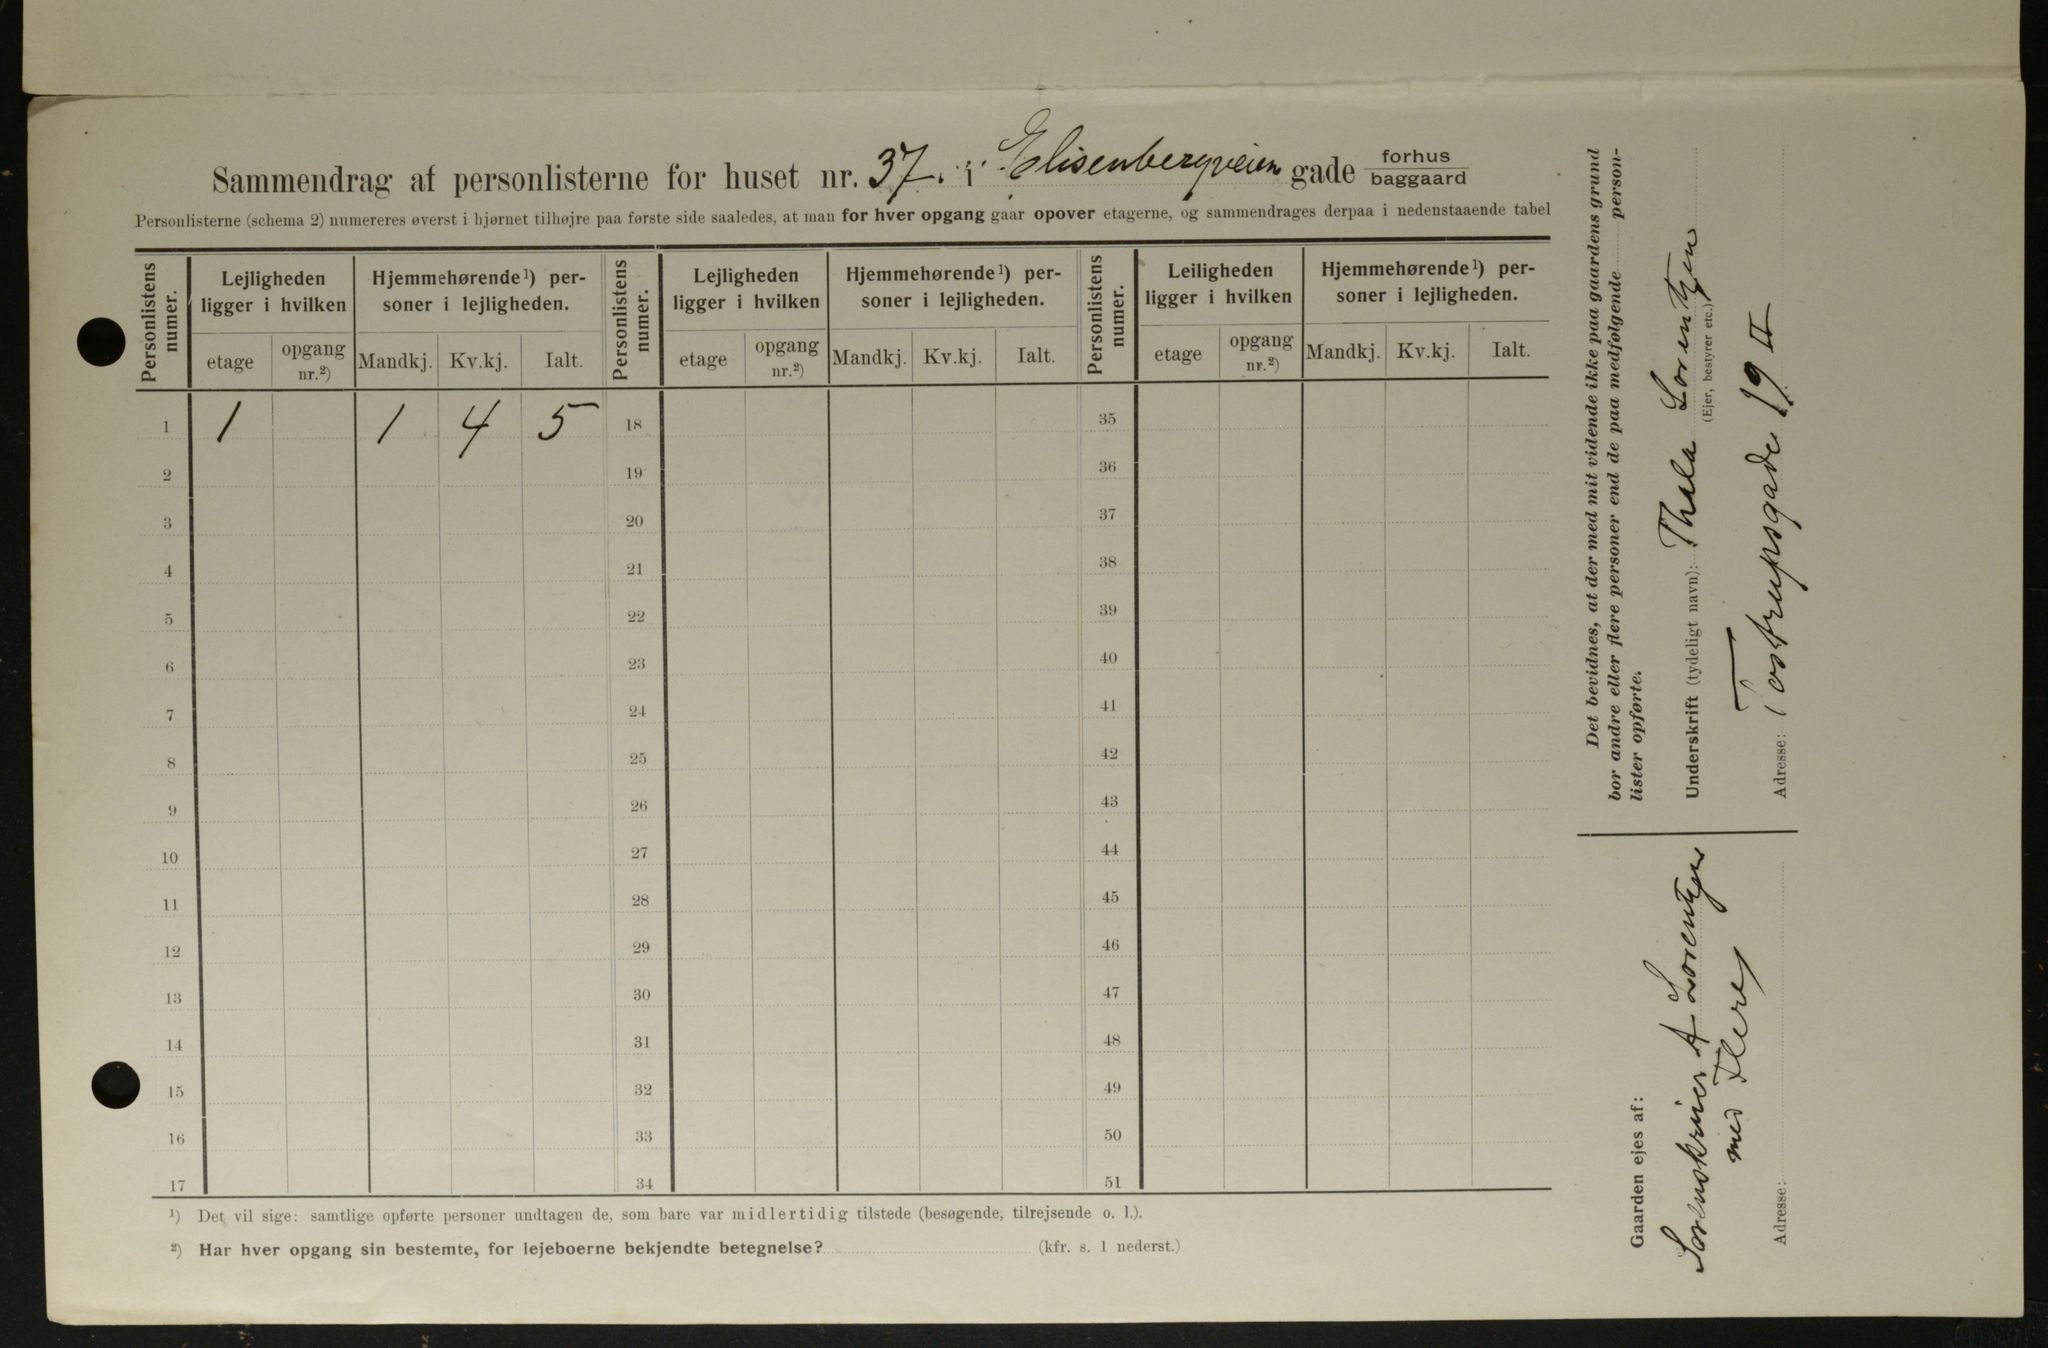 Sammendrag af personlisterne for huset nr. 37. i Elisenbergveien gade forhus
baggaard
Personlisterne (schema 2) numereres øverst i hjørnet tilhøjre paa første side saaledes, at man for hver opgang gaar opover etagerne, og sammendrages derpaa i nedenstaaende tabel
Personlistens numer. Lejligheden ligger i hvilken Hjemmehørende¹) personer i lejligheden. Personlistens numer. Lejligheden ligger i hvilken Hjemmehørende¹) personer i lejligheden. Personlistens numer. Leiligheden ligger i hvilken Hjemmehørende¹) personer i lejligheden.
etage opgang nr.²) Mandkj. Kv.kj. Ialt. etage opgang nr.²) Mandkj. Kv.kj. Ialt. etage opgang nr.²) Mandkj. Kv.kj. Ialt.
1 1 1 4 5 18 35
2 19 36
3 20 37
4 21 38
5 22 39
6 23 40
7 24 41
8 25 42
9 26 43
10 27 44
11 28 45
12 29 46
13 30 47
14 31 48
15 32 49
16 33 50
17 34 51
¹) Det vil sige: samtlige opførte personer undtagen de, som bare var midlertidig tilstede (besøgende, tilrejsende o. l.).
²) Har hver opgang sin bestemte, for lejeboerne bekjendte betegnelse? (kfr. s. 1 nederst.)
Det bevidnes, at der med mit vidende ikke paa gaardens grund
bor andre eller flere personer end de paa medfølgende person-
lister opførte.
Underskrift (tydeligt navn): Thala Lorentzen
(Ejer, bestyrer etc.)
Adresse: Tostrupsgade 19 II
Gaarden ejes af:
Sorenskriver A Lorentzen
med Flere
Adresse: